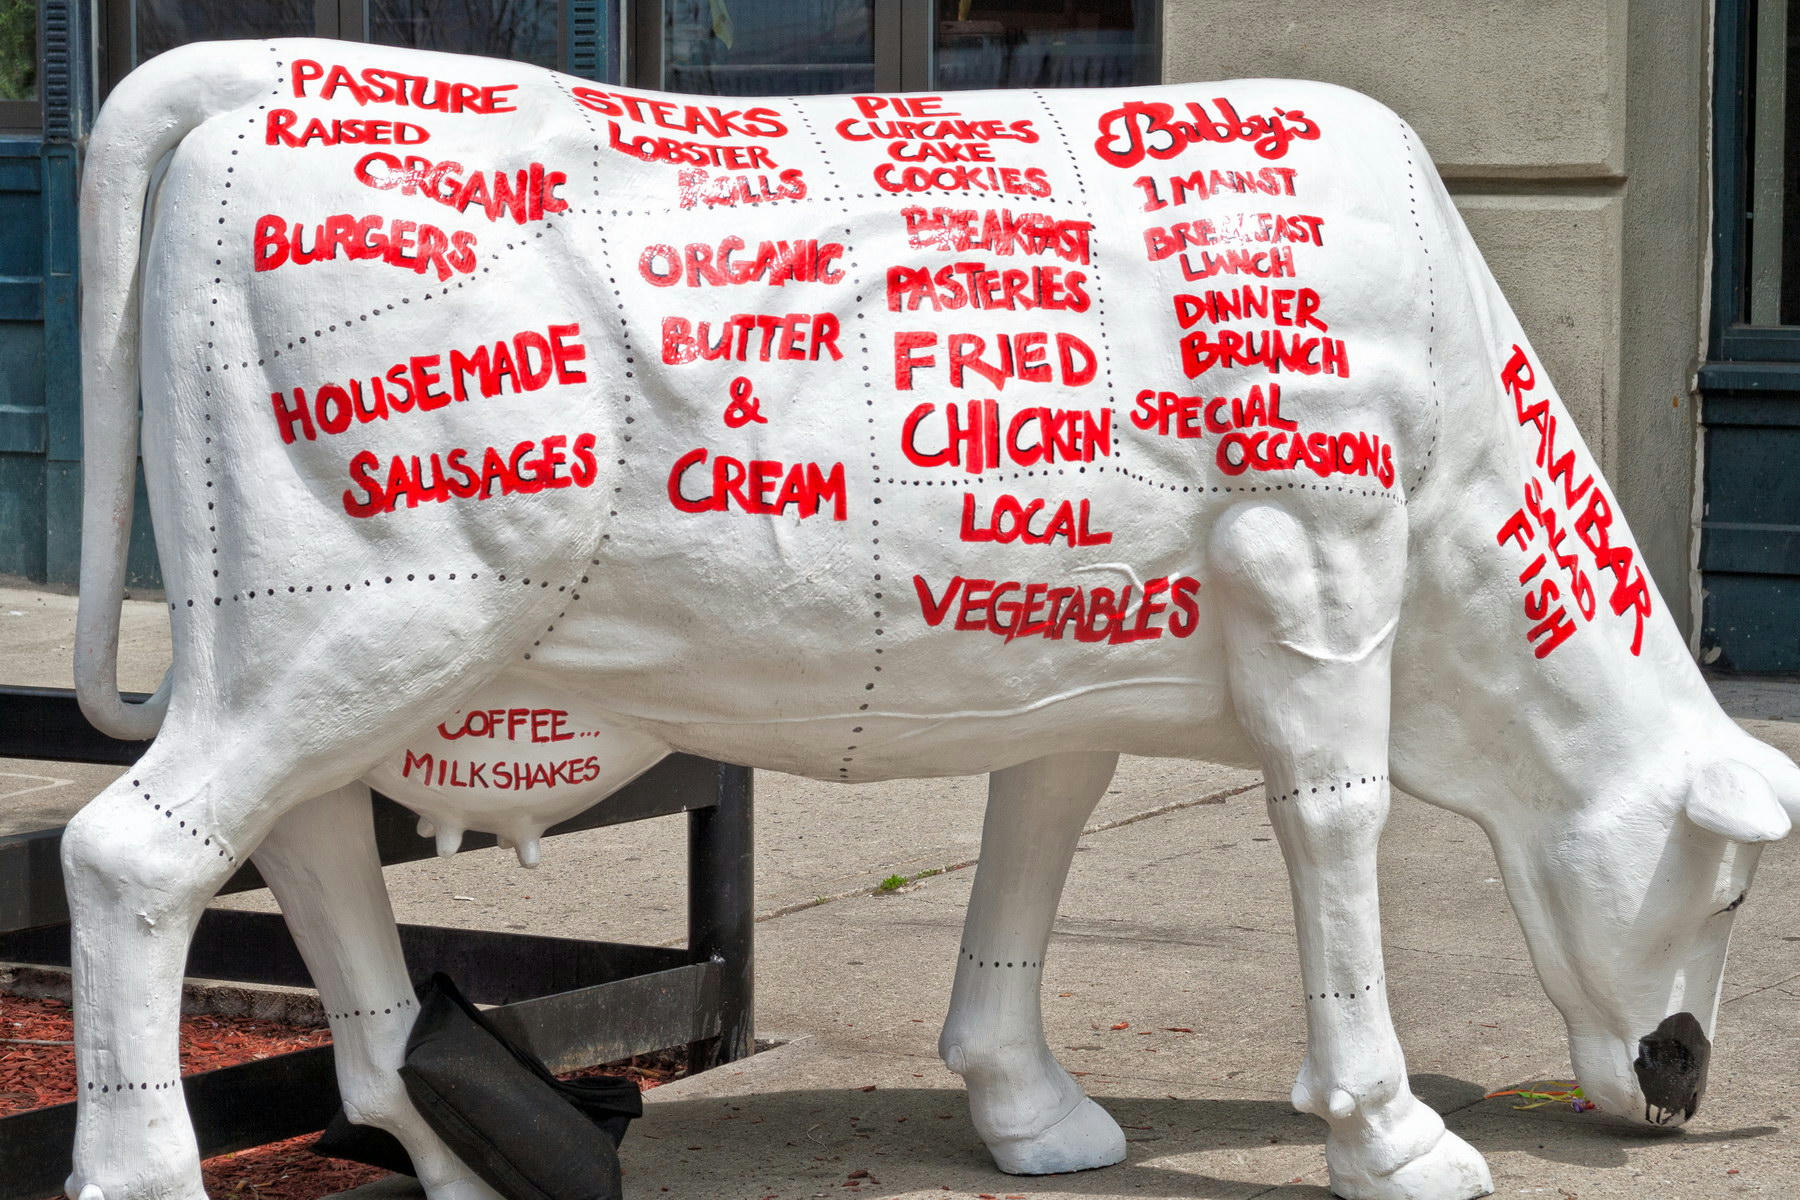 PASTURE
RAISED
ORGANIC
BURGERS
HOUSEMADE
SAUSAGES
STEAKS
LOBSTER
ROLLS
ORGANIC
BUTTER
&
CREAM
PIE
CUPCAKES
CAKE
COOKIES
BREAKFAST
PASTERIES
FRIED
CHICKEN
LOCAL
VEGETABLES
Bubby's
1 MAIN ST
BREAKFAST
LUNCH
DINNER
BRUNCH
SPECIAL
OCCASIONS
RAWBAR
FISH
COFFEE...
MILKSHAKES